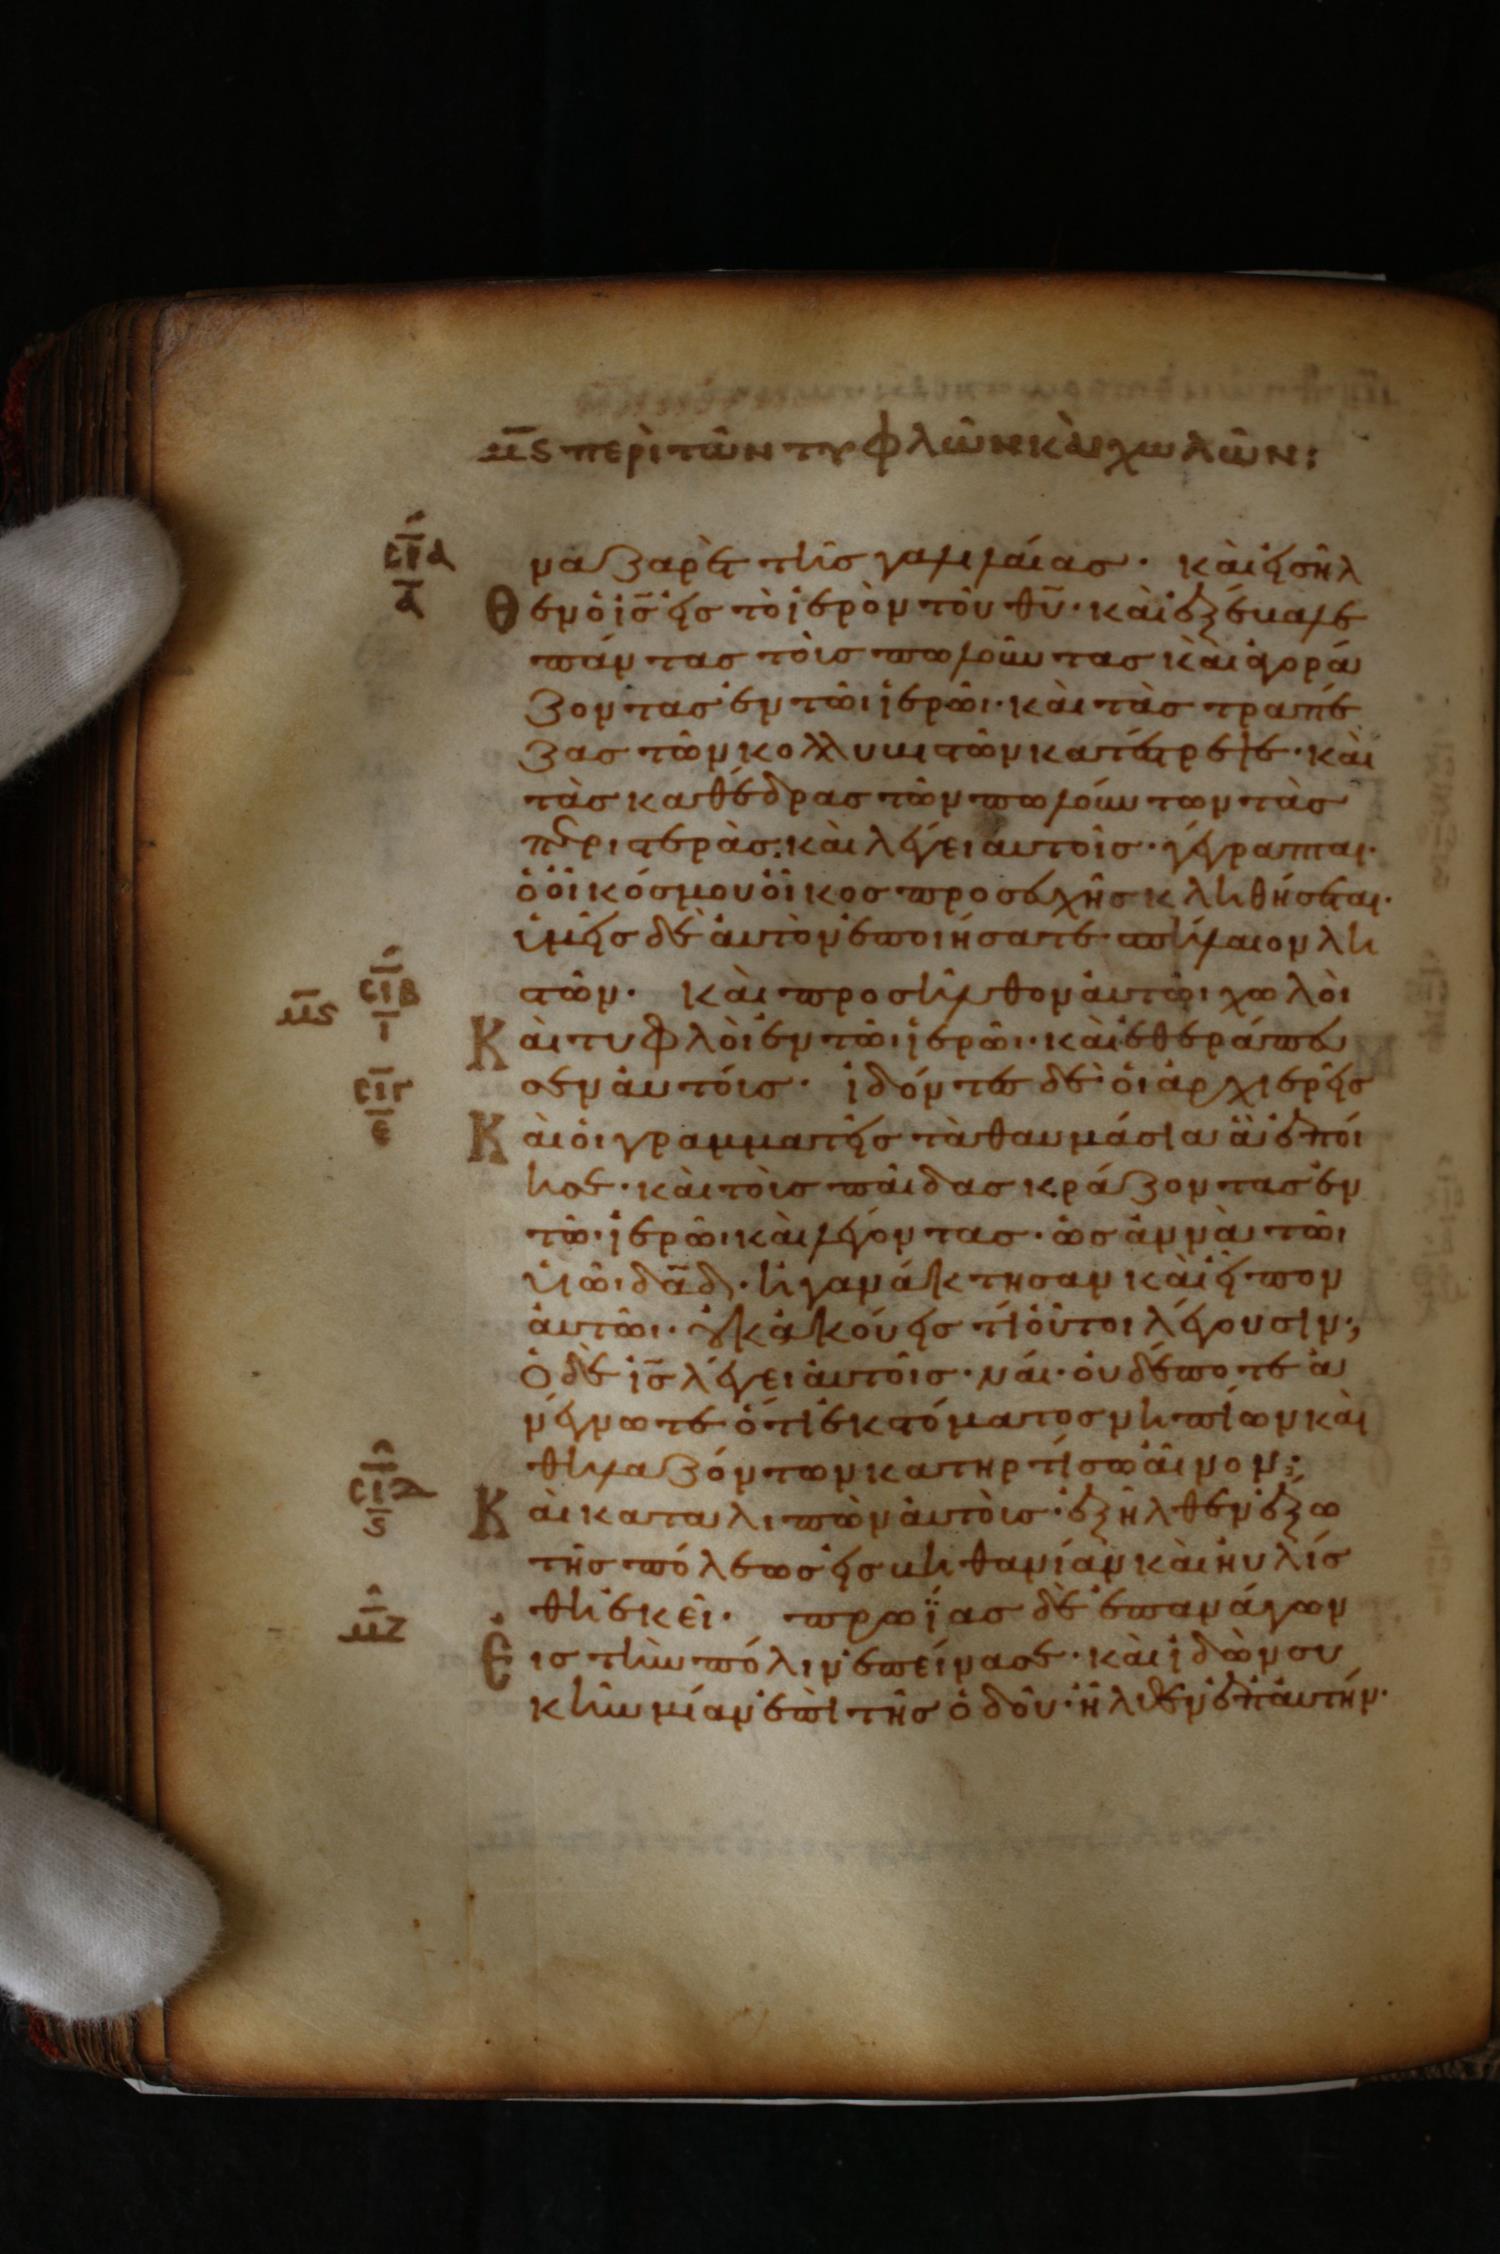 μ̅ς περὶ τῶν τυφλῶν καὶ χωλῶν:
σ̅ι̅α
α̅
ναζαρὲτ τῆς γαλιλαίας · καὶ εἰσῆλ
Θεν ὁ ι̅ς̅ εἰς τὸ ἱερὸν τοῦ θ̅υ̅ · καὶ ἐξέβαλε
πάντας τοὺς πωλοῦντας καὶ ἀγορά
ζοντας ἐν τῶι ἱερῶι · καὶ τὰς τραπέ
ζας τῶν κολλυβιτῶν κατέστρεψε · καὶ
τὰς καθέδρας τῶν πωλούντων τὰς
περιστεράς · καὶ λέγει αὐτοῖς · γέγραπται ·
ὁ οἶκός μου οἶκος προσευχῆς κληθήσεται ·
ὑμεῖς δὲ αὐτὸν ἐποιήσατε σπήλαιον λη
στῶν · καὶ προσῆλθον αὐτῶι χωλοὶ
μ̅ς
σ̅ι̅β
ι̅
Καὶ τυφλοὶ ἐν τῶι ἱερῶι · καὶ ἐθεράπευ
σεν αὐτούς · ἰδόντες δὲ οἱ ἀρχιερεῖς
σ̅ι̅γ
ε̅
Καὶ οἱ γραμματεῖς τὰ θαυμάσια ἃ ἐποί
ησε · καὶ τοὺς παῖδας κράζοντας ἐν
τῶ ἱερῶι καὶ λέγοντας · ὡσαννὰ τῶι
υἱῶι δ̅α̅δ̅ · ἠγανάκτησαν καὶ εἶπον
αὐτῶι · οὐκ ἀκούεις τί οὗτοι λέγουσιν ;
Ὁ δὲ ι̅ς̅ λέγει αὐτοῖς · ναί · οὐδέποτε ἀ
νέγνωτε ὅτι ἐκ στόματος νηπίων καὶ
θηλαζόντων κατηρτίσω αἶνον ;
σ̅ι̅δ
ς̅
Καὶ καταλιπὼν αὐτοὺς · ἐξῆλθεν ἔξω
τῆς πόλεως εἰς βηθανίαν καὶ ηὐλίσ
θη ἐκεῖ · πρωΐας δὲ ἐπανάγων
μ̅ζ
Εἰς τὴν πόλιν ἐπείνασε · καὶ ἰδὼν συ
κῆν μίαν ἐπὶ τῆς ὁδοῦ · ἦλθεν ἐπ' αὐτήν ·